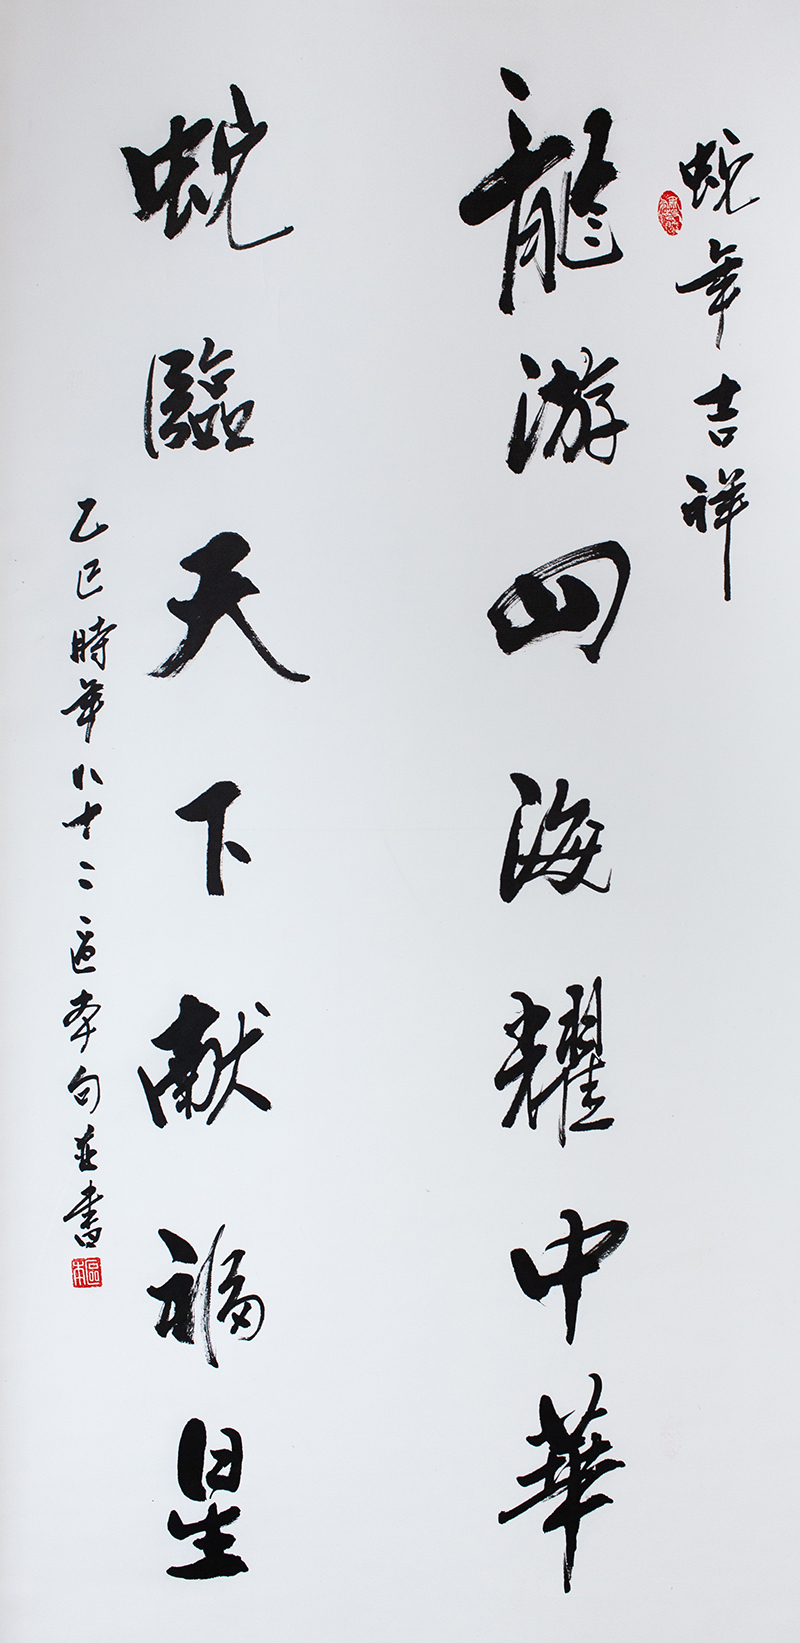 蛇年吉祥
龍游四海耀中華
蛇臨天下献福星
乙巳時年八十二區本句並書
區本